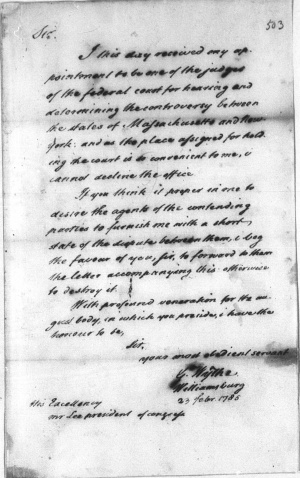 503
Sir.
I this day received my ap
pointment to be one of the judges
of the federal court for hearing and
determining the controversy between
the states of Massachusetts and New
York: and as the place assigned for hold
ing the court is so convenient to me, i
cannot decline the office
If you think it proper in me to
desire the agents of the contending
parties to furnish me with a short
state of the dispute between them, i beg
the favour of you, sir, to forward to them
the letter accompanying this: otherwise
to destroy it.
With profound veneration for the au
gust body, in which you preside, i have the
honour to be,
Sir,
your most obedient servant
G. Wythe
Williamsburg
23 febr. 1785
His Excellency
mr Lee president of congress